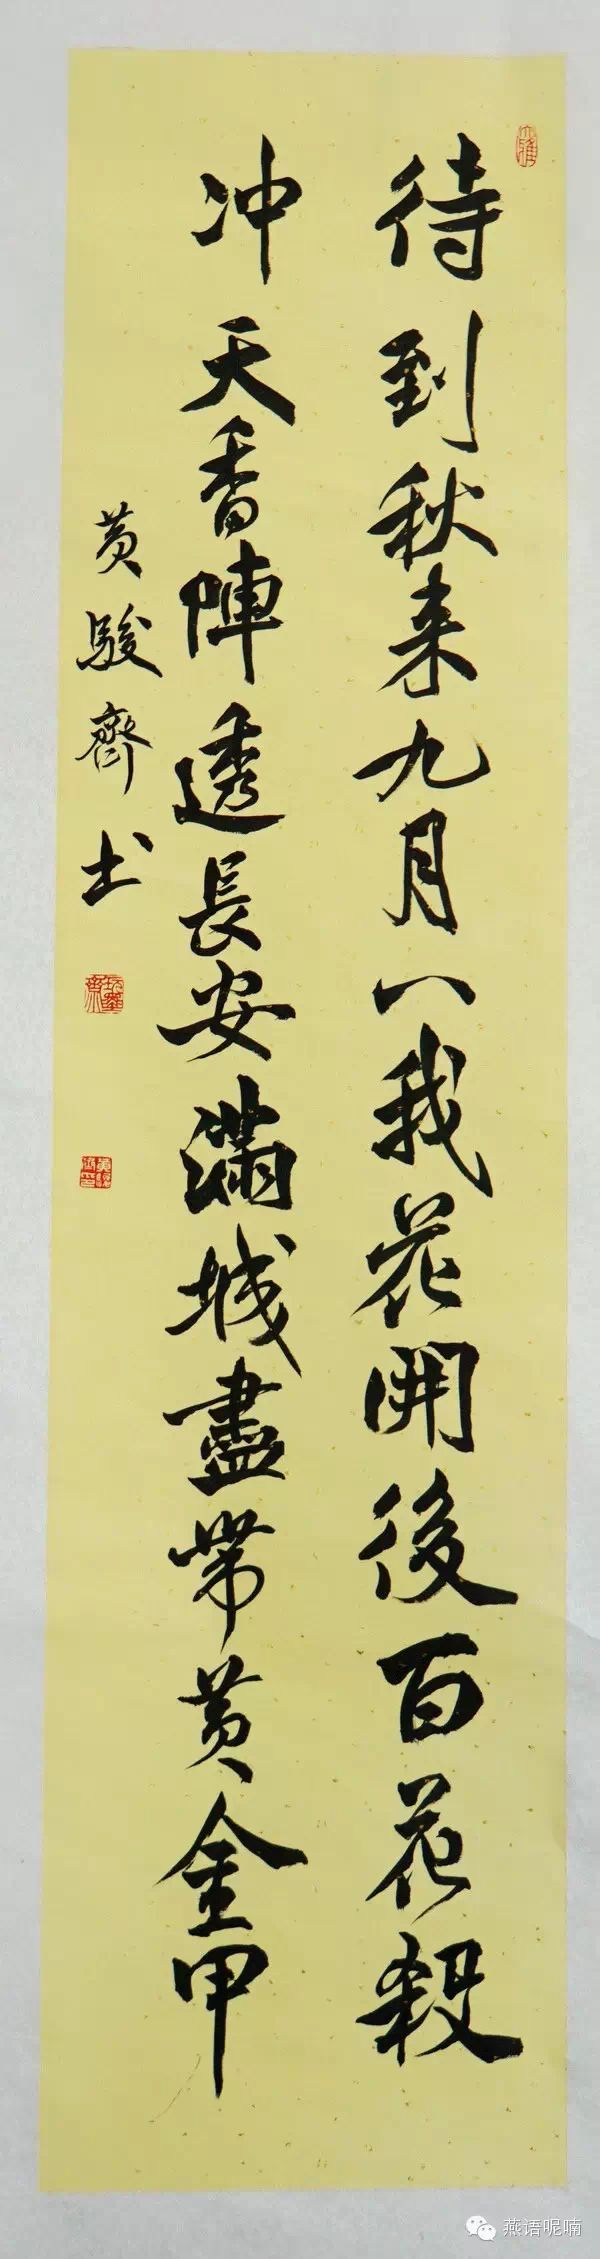 待到秋来九月八我花開後百花殺
冲天香陣透長安滿城盡帶黄金甲
黄駿齊书
燕语呢喃